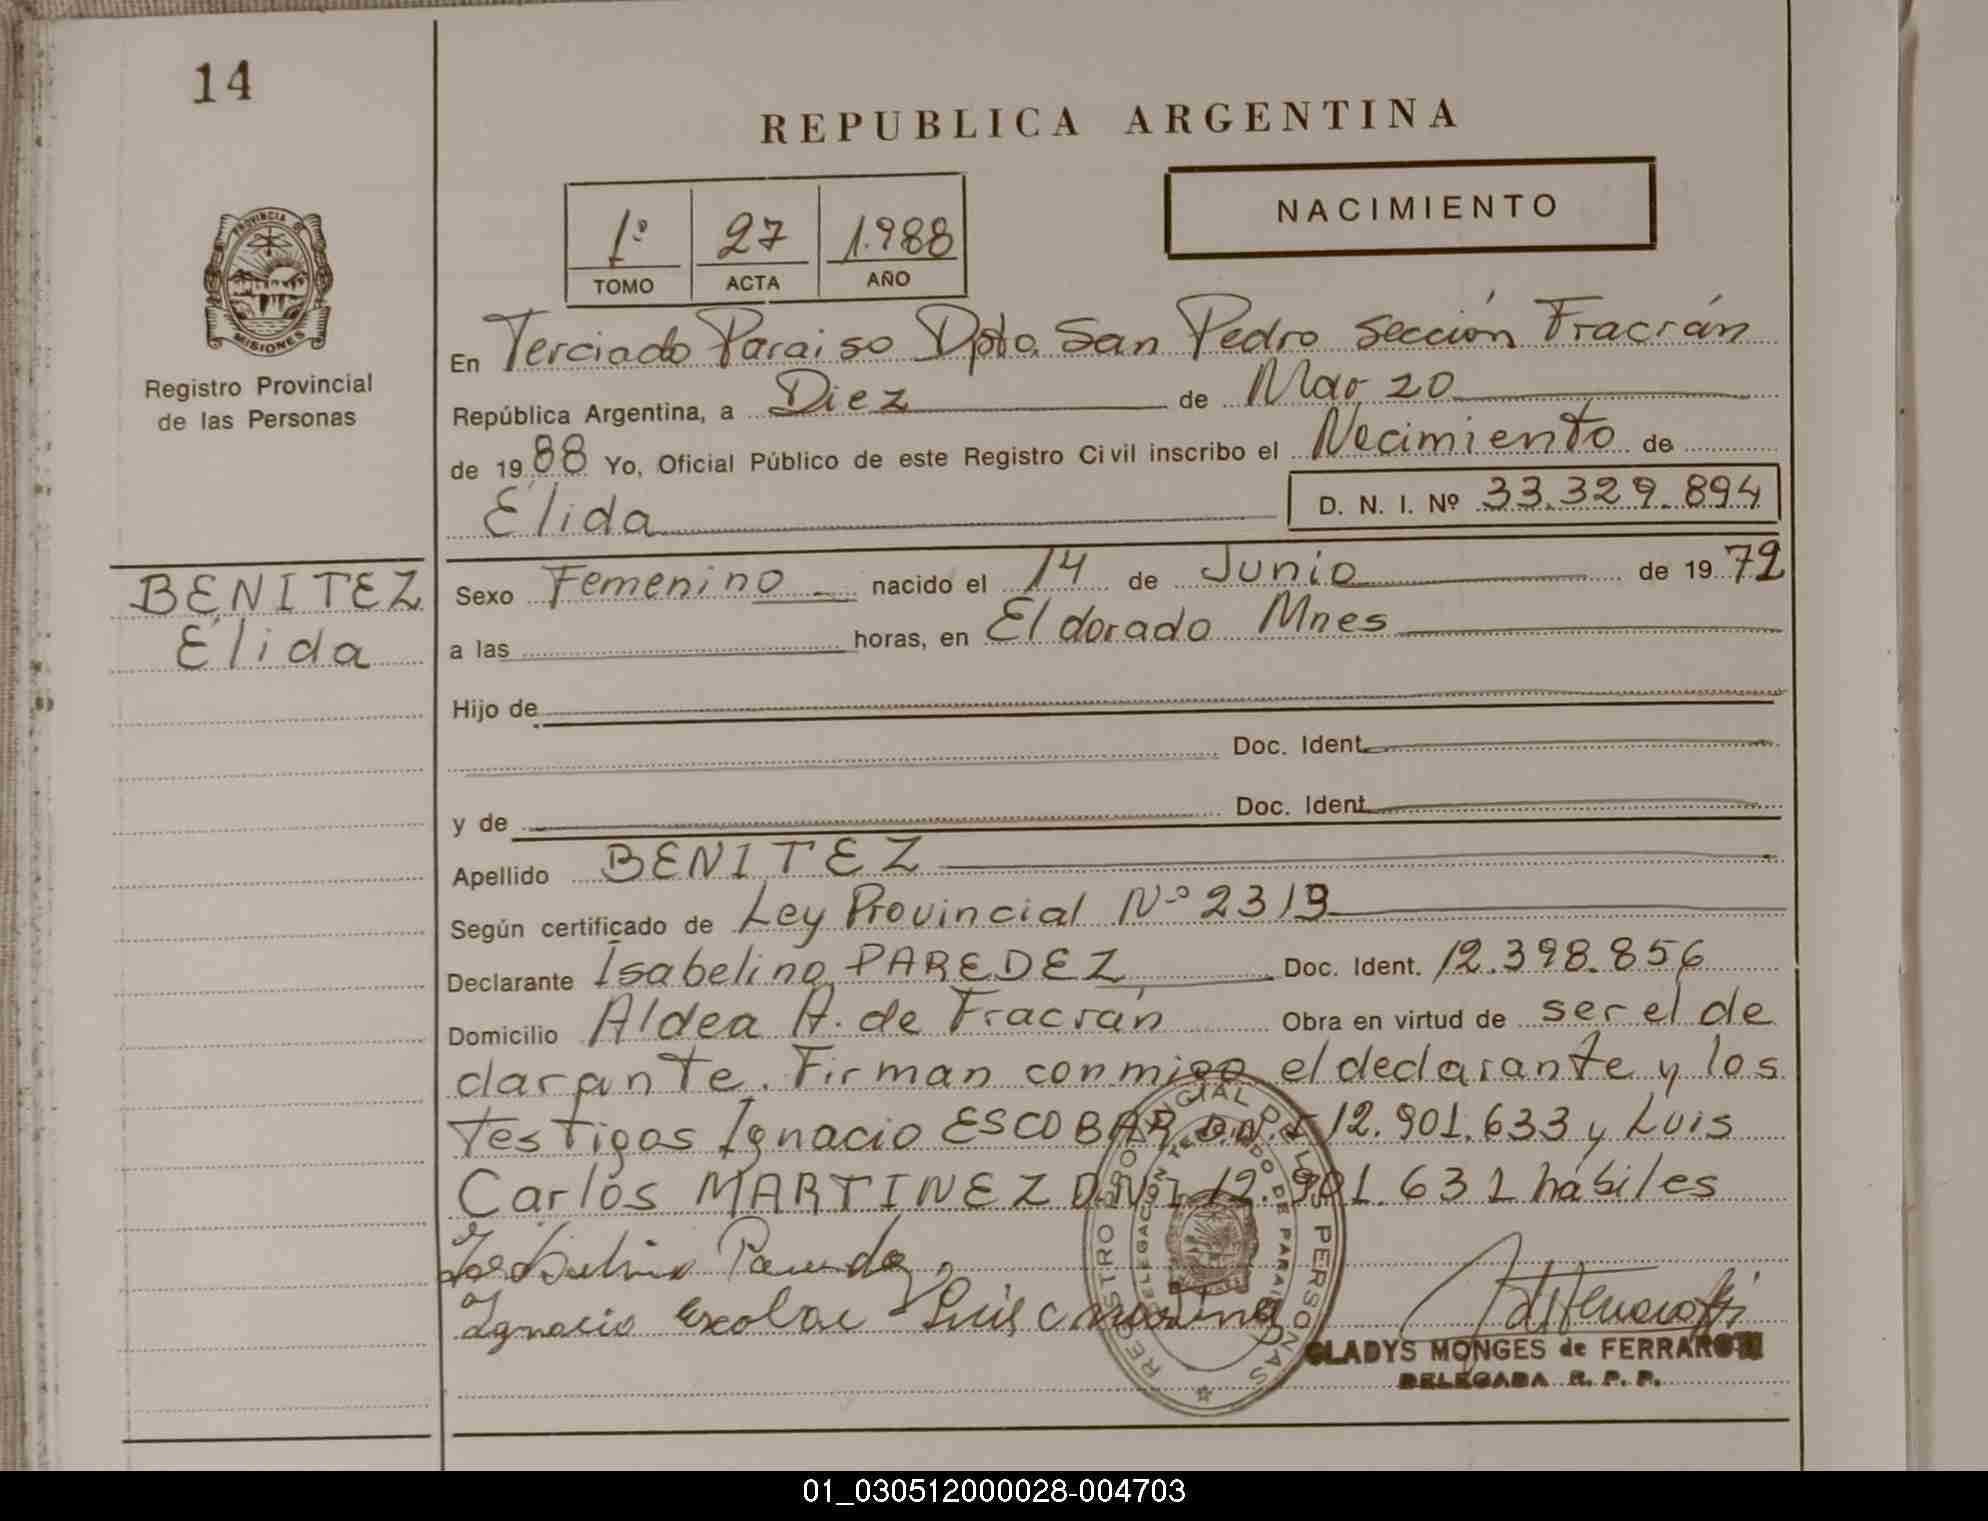 14
REPUBLICA ARGENTINA
NACIMIENTO
1º 27 1.988
TOMO ACTA AÑO
PROVINCIA
MISIONES
Registro Provincial
de las Personas
En Terciado Paraiso Dpto. San Pedro Sección Fracrán
República Argentina, a Diez de Marzo
de 1988 Yo, Oficial Público de este Registro Civil inscribo el Necimiento de
Élida D. N. I. Nº 33.329.894
BENITEZ
Élida
Sexo Femenino nacido el 14 de Junio de 1972
a las horas, en Eldorado Mnes
Hijo de
Doc. Ident.
y de Doc. Ident.
Apellido BENITEZ
Según certificado de Ley Provincial Nº 2313
Declarante Isabelino PAREDEZ Doc. Ident. 12.398.856
Domicilio Aldea A. de Fracrán Obra en virtud de ser el de
clarante. Firman conmigo el declarante y los
testigos Ignacio ESCOBAR D.N.I 12.901.633 y Luis
Carlos MARTINEZ D.N.I 12.901.631 hábiles
Ignacio Escobar Luis C
REGISTRO PROVINCIAL DE LAS PERSONAS
DELEGACION TERCIADO DE PARAISO
GLADYS MONGES de FERRAROTTI
DELEGADA R. P. P.
01_030512000028-004703